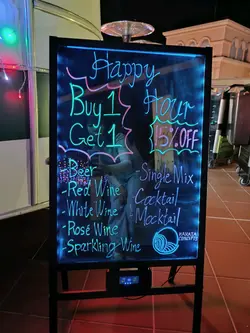 Happy
Hour
Buy 1
Get 1
15% OFF
- Beer
- Red Wine
- White Wine
- Rosé Wine
- Sparkling Wine
- Single Mix
- Cocktail
- Mocktail